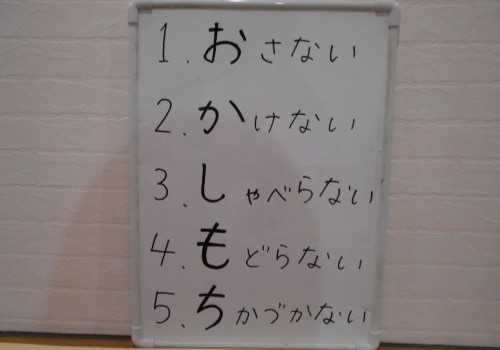 1. おさない
2. かけない
3. しゃべらない
4. もどらない
5. ちかづかない